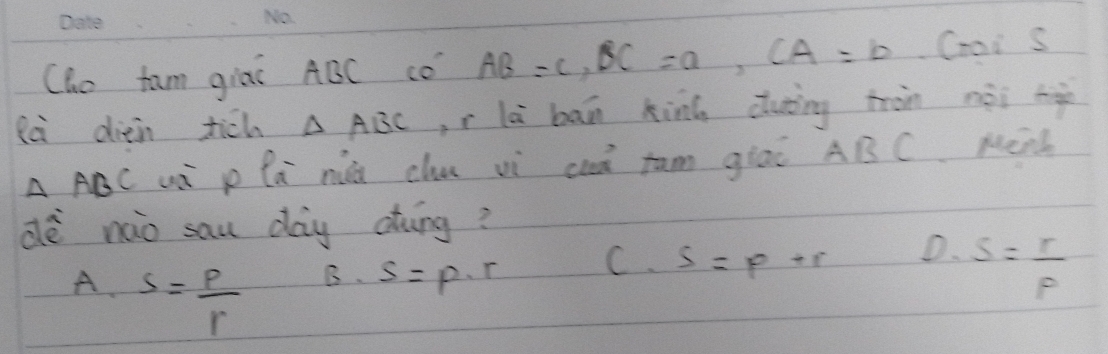 Date No.
Cho tam giác ABC có AB = c, BC = a, CA = b. Gọi S
là diện tích Δ ABC, r là bán kính đường tròn nội tiếp
Δ ABC và p là nửa chu vi của tam giác ABC. Mệnh
đề nào sau đây đúng?
A. S = p/r B. S = p.r C. S = p + r D. S = r/p